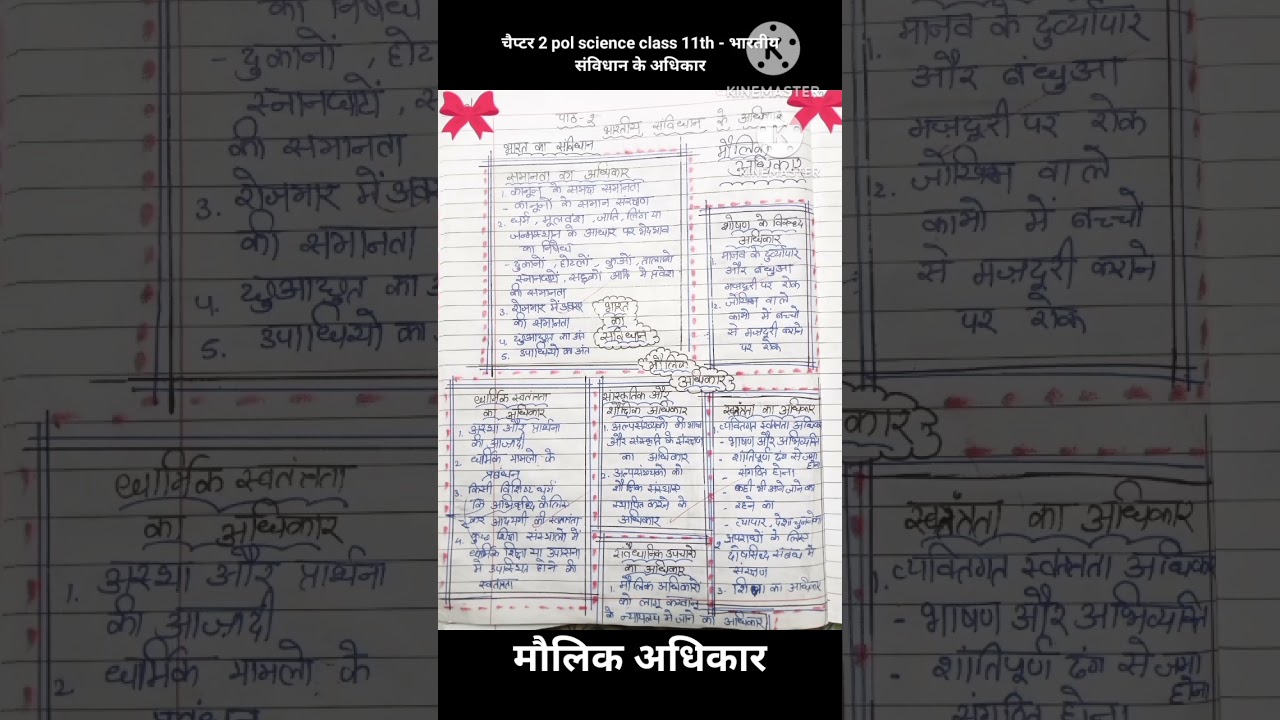 चैप्टर 2 pol science class 11th - भारतीय
संविधान के अधिकार
KINEMASTER
पाठ-2
भारतीय संविधान के अधिकार
भारत का संविधान
मौलिक
अधिकार
समानता का अधिकार
1. कानून के समक्ष समानता
- कानूनों के समान संरक्षण
2. धर्म, मूलवंश, जाति, लिंग या
जन्मस्थान के आधार पर भेदभाव
का निषेध
- दुकानों, होटलों, कुओं, तालाबों
स्नानघाटों, सड़कों आदि में प्रवेश
की समानता
3. रोजगार में अवसर
की समानता
4. छुआछूत का अंत
5. उपाधियो का अंत
भारत
का
संविधान
शोषण के विरुद्ध
अधिकार
1. मानव के दुर्व्यापार
और बंधुआ
मजदूरी पर रोक
2. जोखिम वाले
कामो में बच्चो
से मजदूरी कराने
पर रोक
मौलिक
अधिकार
धार्मिक स्वतंतता
का अधिकार
1. अस्था और प्रार्थना
की आज़ादी
2 धार्मिक मामलो के
प्रबंधन
3. किसी विशिष्ट धर्म
कि अभिवृद्धि के लिए
कर अदायगी की स्वतंत्रता
4. कुछ शिक्षा संस्थाओ में
धार्मिक शिक्षा या उपासना
में उपस्थित होने की
स्वतंत्रता
सांस्कृतिक और
शैक्षिक अधिकार
1. अल्पसंख्यको की भाषा
और संस्कृति के संरक्षण
का अधिकार
2. अल्पसंख्यको को
शैक्षिक संस्थाए
स्थापित करने के
अधिकार
संवैधानिक उपचारो
का अधिकार
1. मौलिक अधिकारो
को लागू करवाने
के न्यायलय में जाने का अधिकार
स्वतंत्रता का अधिकार
1. व्यक्तिगत स्वतंत्रता अधिकार
- भाषण और अभिव्यक्ति
- शांतिपूर्ण ढंग से जमा होना
- संगठित होना
- कही भी आने जाने का
- रहने का
- व्यापार, पेशा चुनने का
2 अपराधो के लिए
दोषसिद्ध संबंध में
संरक्षण
3. शिक्षा का अधिकार
मौलिक अधिकार